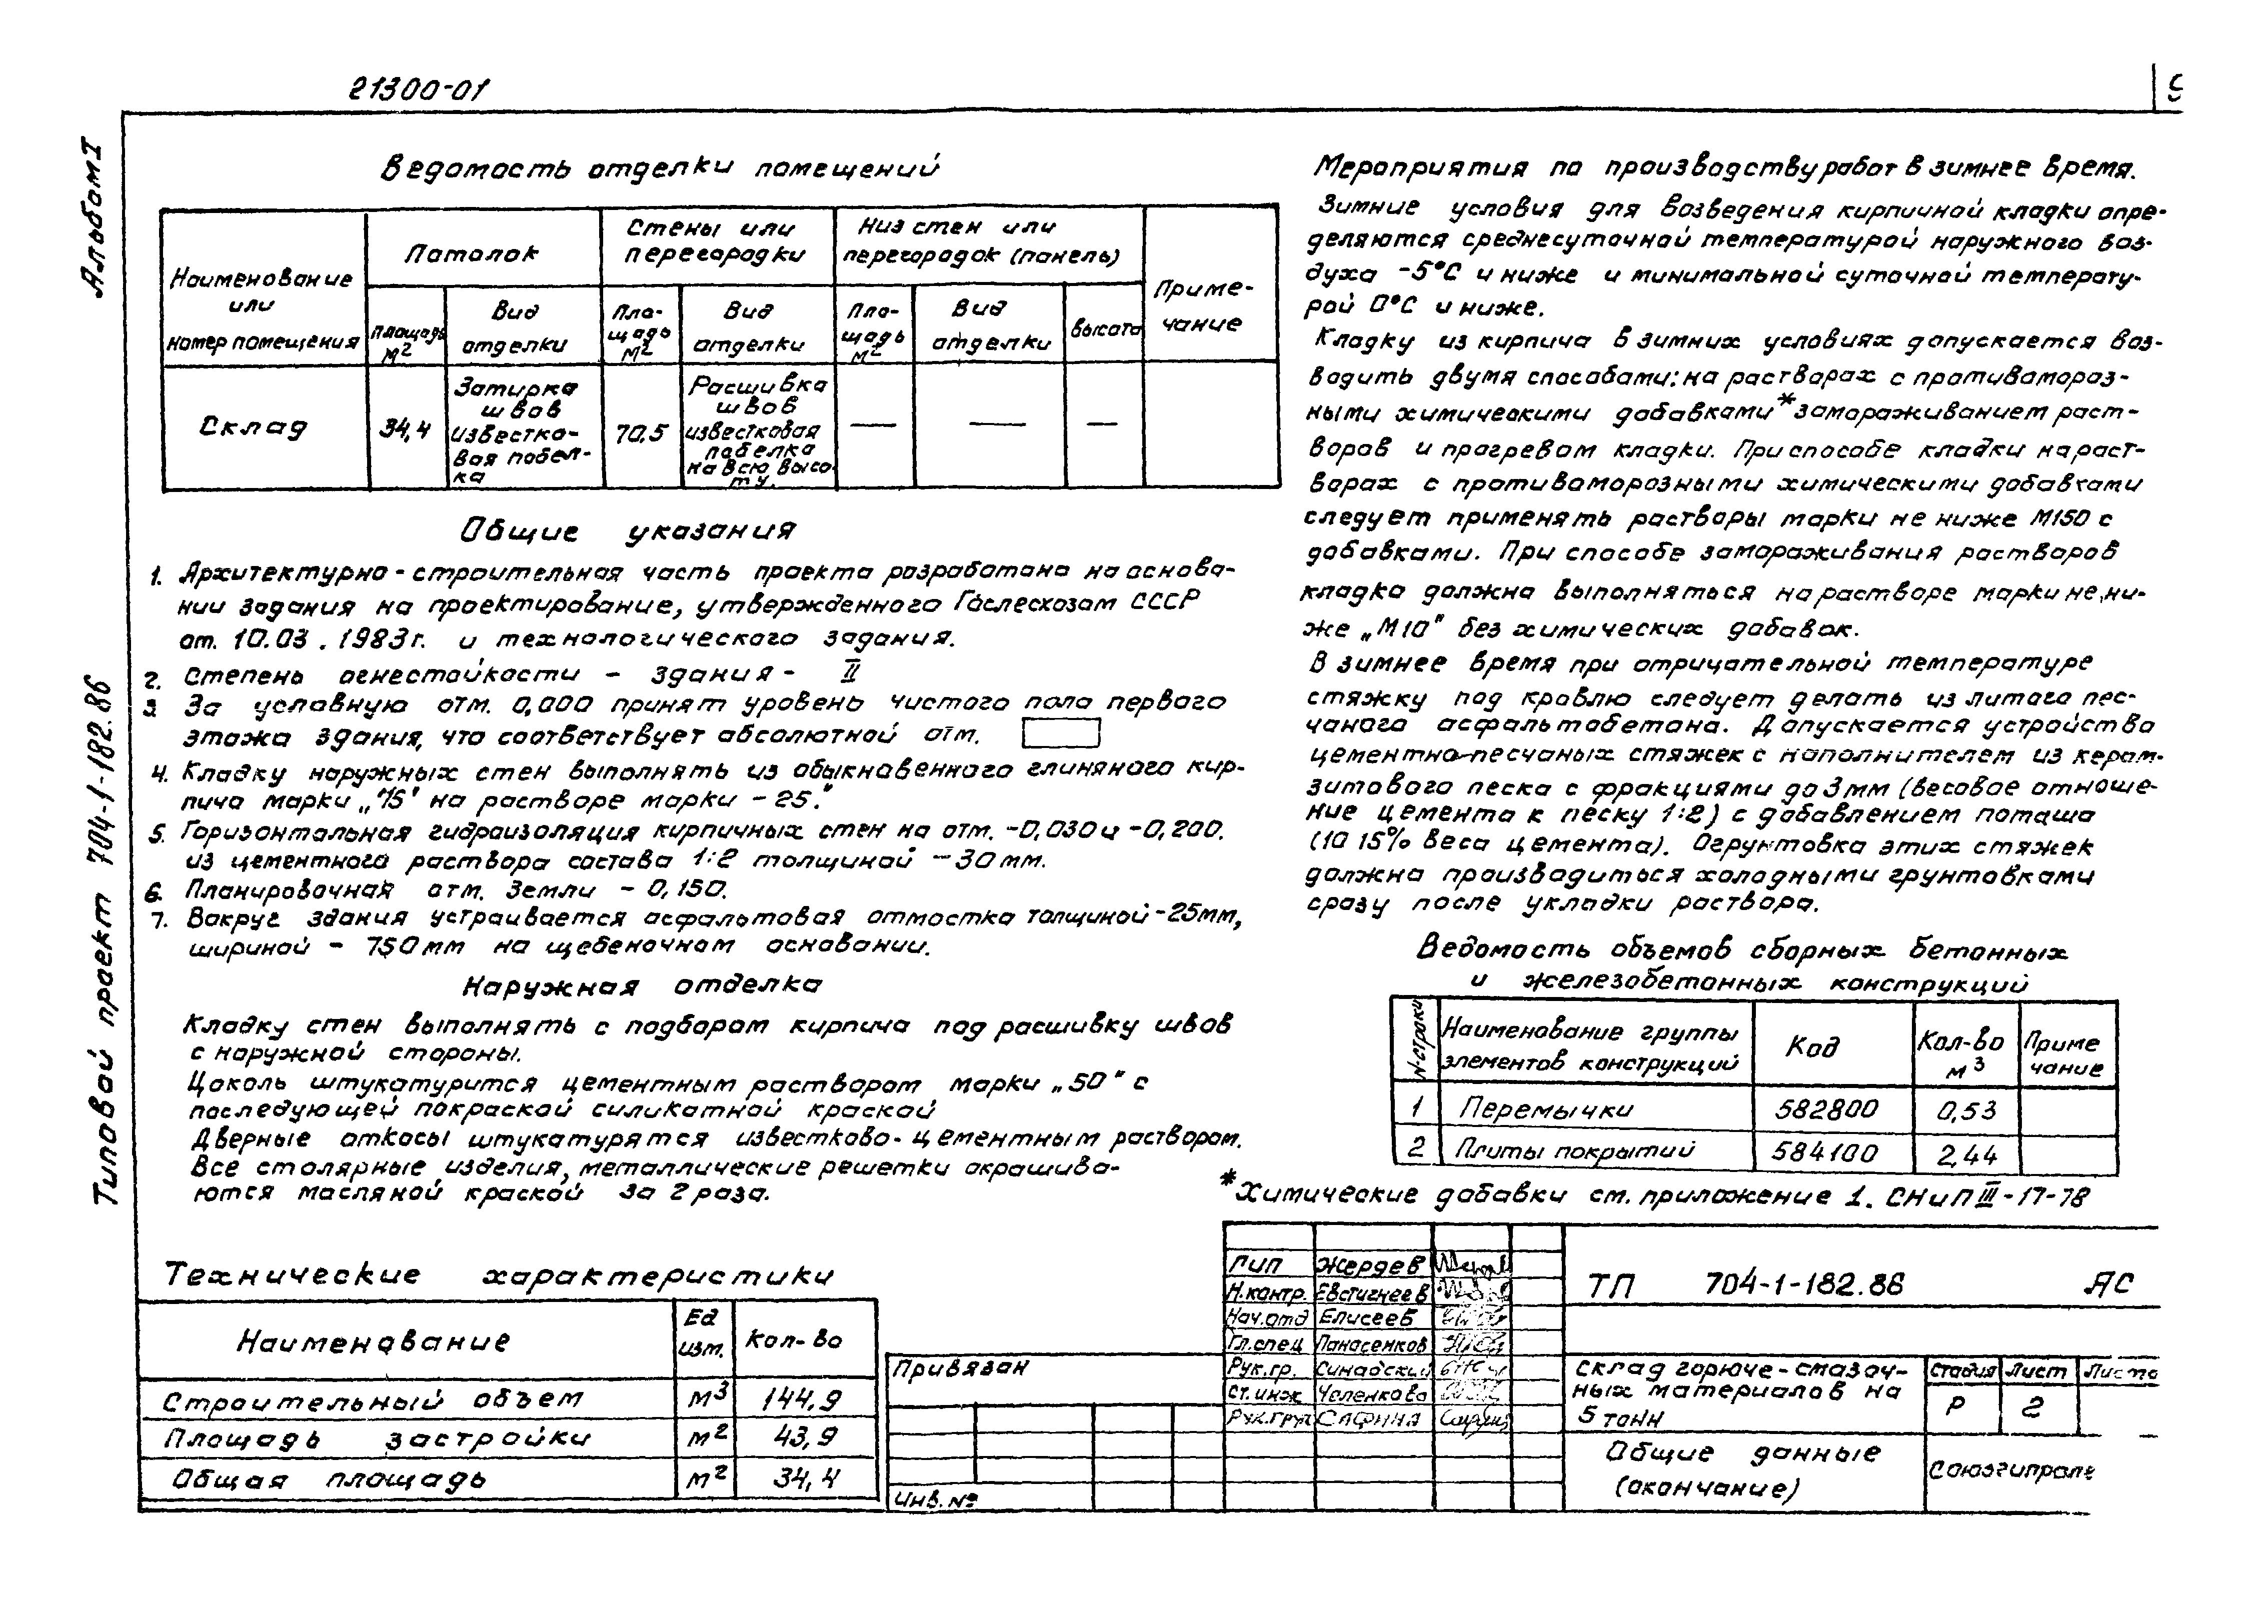 21300-01
Альбом I
Типовой проект 704-1-182.86
Ведомость отделки помещений
Наименование
или
номер помещения
Потолок
Стены или
перегородки
Низ стен или
перегородок (панель)
Приме-
чание
площадь
м2
Вид
отделки
Пло-
щадь
м2
Вид
отделки
Пло-
щадь
м2
Вид
отделки
высота
Склад
34,4
Затирка
швов
известко-
вая побел-
ка
70,5
Расшивка
швов
известковая
побелка
на всю высо
ту.
—
—
—
Общие указания
1. Архитектурно-строительная часть проекта разработана на основа-
нии задания на проектирование, утвержденного Гослесхозом СССР
от. 10.03.1983г. и технологического задания.
2. Степень огнестойкости – здания – II
3. За условную отм. 0,000 принят уровень чистого пола первого
этажа здания, что соответствует абсолютной отм.
4. Кладку наружных стен выполнять из обыкновенного глиняного кир-
пича марки „75" на растворе марки – 25."
5. Горизонтальная гидроизоляция кирпичных стен на отм. -0,030 и -0,200.
из цементного раствора состава 1:2 толщиной – 30 мм.
6. Планировочная отм. Земли – 0,150.
7. Вокруг здания устраивается асфальтовая отмостка толщиной -25мм,
шириной – 750 мм на щебеночном основании.
Наружная отделка
Кладку стен выполнять с подбором кирпича под расшивку швов
с наружной стороны.
Цоколь штукатурится цементным раствором марки „50" с
последующей покраской силикатной краской
Дверные откосы штукатурятся известково-цементным раствором.
Все столярные изделия, металлические решетки окрашива-
ются масляной краской за 2 раза.
Технические характеристики
Наименование
Ед
изм.
Кол-во
Строительный объем м3 144,9
Площадь застройки м2 43,9
Общая площадь м2 34,4
Мероприятия по производству работ в зимнее время.
Зимние условия для возведения кирпичной кладки опре-
деляются среднесуточной температурой наружного воз-
духа -5°С и ниже и минимальной суточной температу-
рой 0°С и ниже.
Кладку из кирпича в зимних условиях допускается воз-
водить двумя способами: на растворах с противомороз-
ными химическими добавками* замораживанием раст-
воров и прогревом кладки. При способе кладки на раст-
ворах с противоморозными химическими добавками
следует применять растворы марки не ниже М150 с
добавками. При способе замораживания растворов
кладка должна выполняться на растворе марки не ни-
же „М10" без химических добавок.
В зимнее время при отрицательной температуре
стяжку под кровлю следует делать из литого пес-
чаного асфальтобетона. Допускается устройство
цементно-песчаных стяжек с наполнителем из керам-
зитового песка с фракциями до 3мм (весовое отноше-
ние цемента к песку 1:2) с добавлением поташа
(10 15% веса цемента). Огрунтовка этих стяжек
должна производиться холодными грунтовками
сразу после укладки раствора.
Ведомость объемов сборных бетонных
и железобетонных конструкций
N-строки
Наименование группы
элементов конструкций
Код
Кол-во
м3
Приме
чание
1 Перемычки 582800 0,53
2 Плиты покрытий 584100 2,44
*Химические добавки см. приложение 1. СНиП III-17-78
Привязан
Инв. №
Гип Жердев
Н.контр. Евстигнеев
Нач.отд Елисеев
Гл.спец Панасенков
Рук.гр. Синадский
Ст.инж Чаленкова
Рук.груп Сафина
ТП 704-1-182.86 АС
Склад горюче-смазоч-
ных материалов на
5 тонн
Стадия Лист Листо
Р 2
Общие данные
(окончание)
Союзгипроле